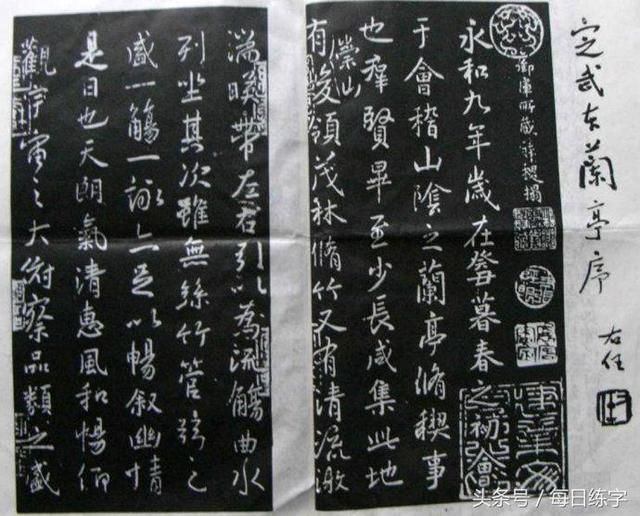 定武本蘭亭序
右任
御庫所藏薛稷搨
永和九年歲在癸丑暮春之初會
于會稽山陰之蘭亭脩稧事
也群賢畢至少長咸集此地
有崇山峻領茂林脩竹又有清流激
湍暎帶左右引以為流觴曲水
列坐其次雖無絲竹管弦之
盛一觴一詠亦足以暢叙幽情
是日也天朗氣清惠風和暢仰
觀宇宙之大俯察品類之盛
头条号 / 每日练字